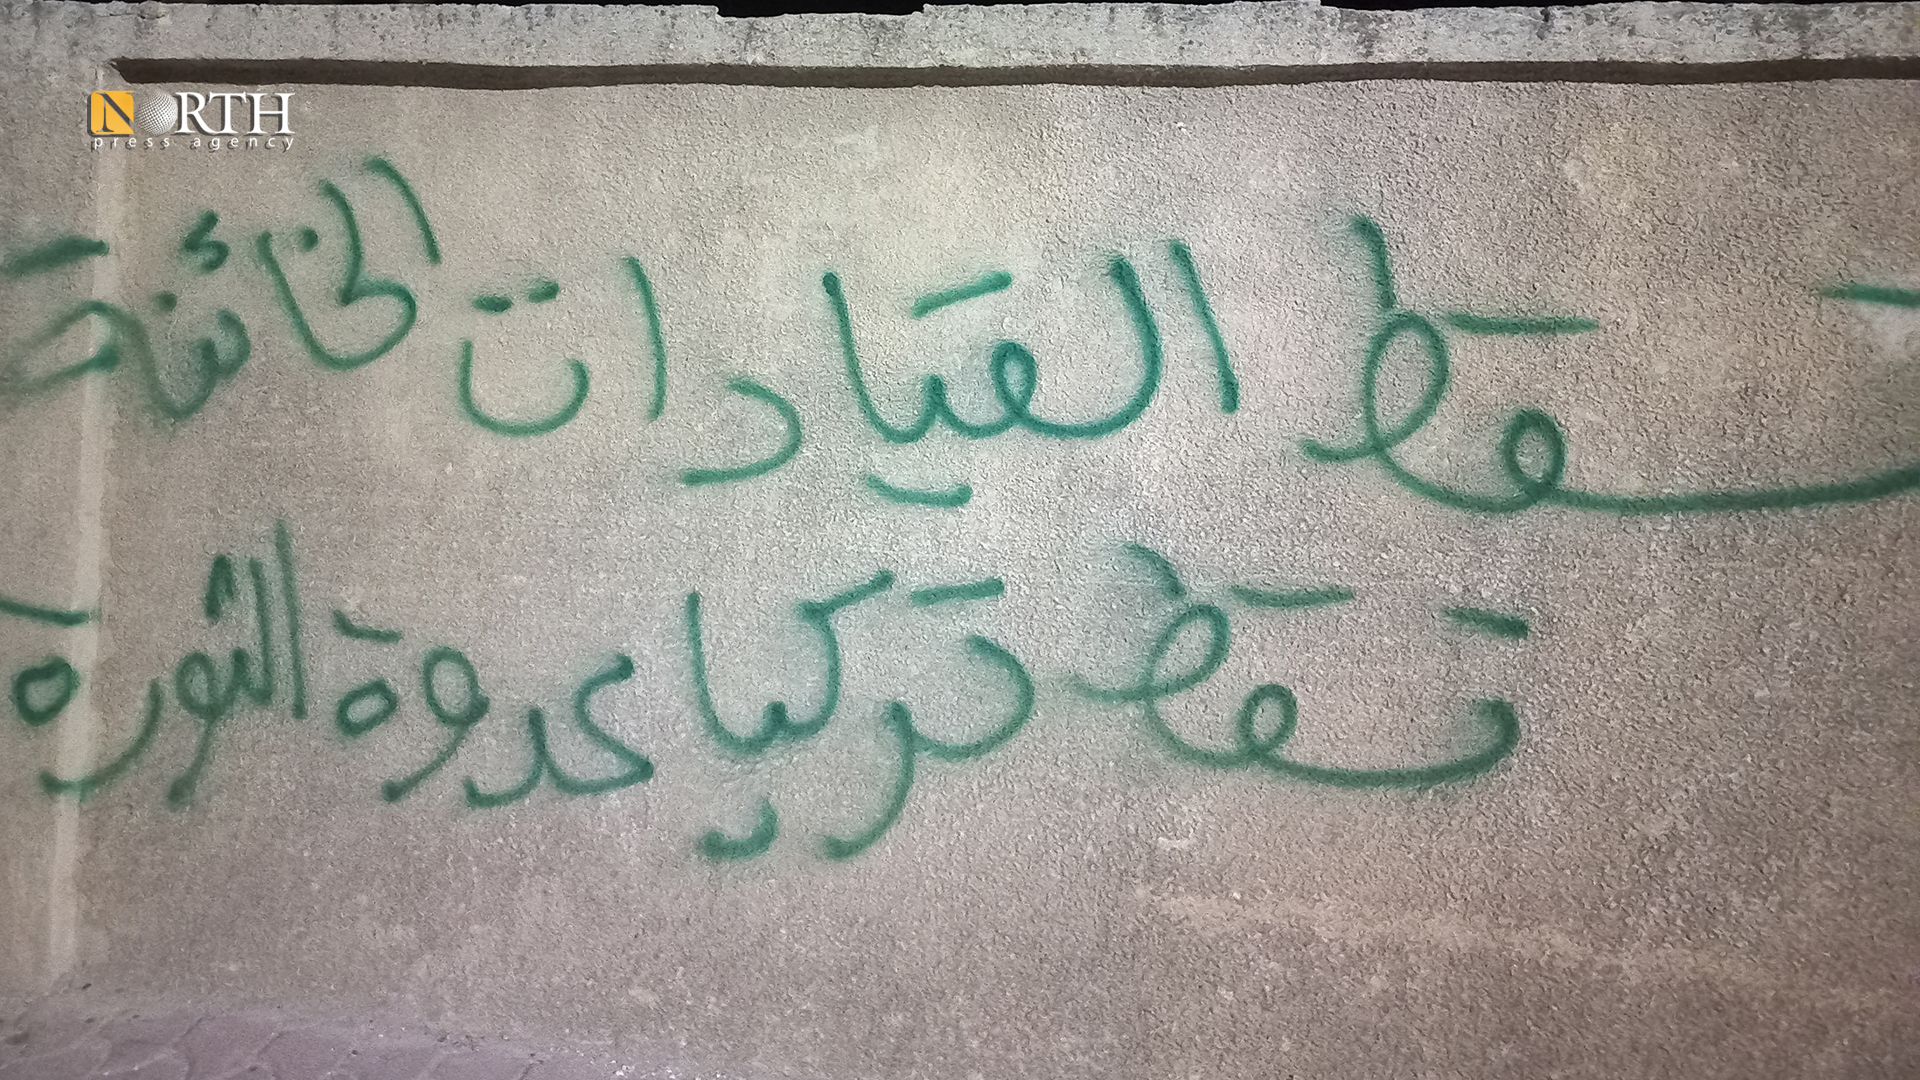 NORTH
press agency
تسقط القيادات الخائنة
تسقط تركيا عدوة الثورة